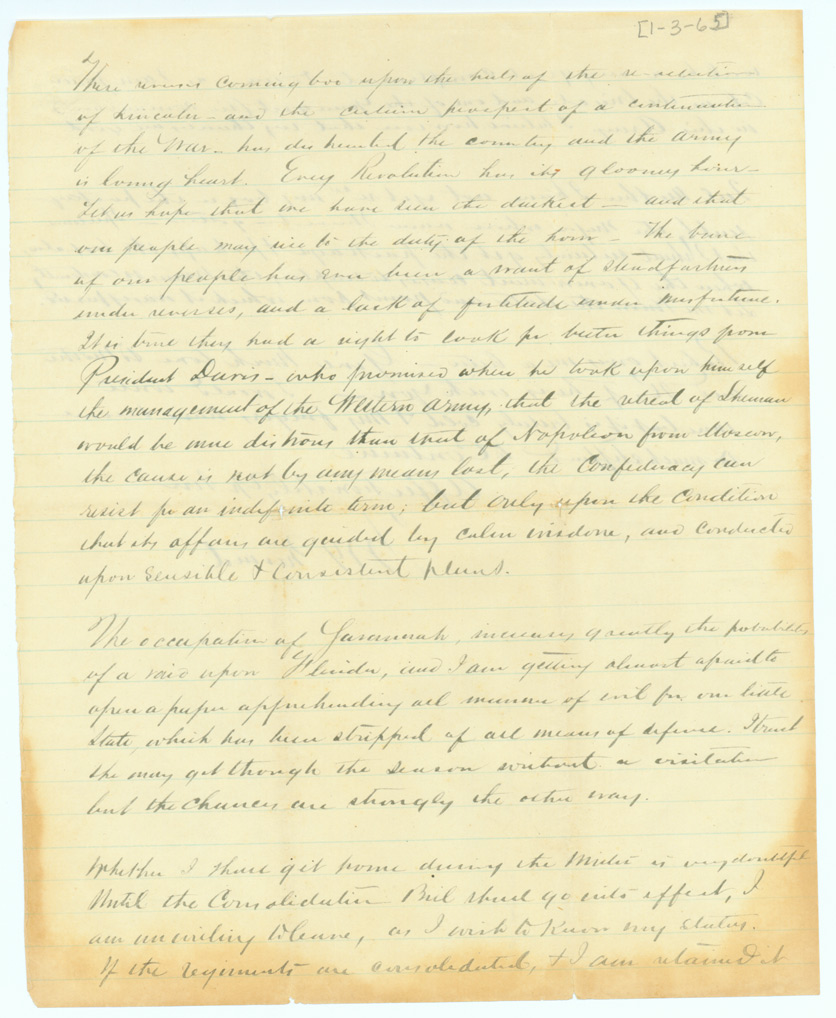 [1-3-65]
These reverses coming too upon the heels of the re-election
of Lincoln - and the certain prospect of a continuation
of the War - has disheartened the country and the army
is losing heart. Every Revolution has its gloomy hour -
Let us hope that we have seen the darkest - and that
our people may rise to the duty of the hour - The bane
of our people has ever been a want of steadfastness
under reverses, and a lack of fortitude under misfortune.
It is true they had a right to look for better things from
President Davis - who promised when he took upon himself
the management of the Western army, that the retreat of Sherman
would be more disastrous than that of Napoleon from Moscow,
the cause is not by any means lost, the Confederacy can
resist for an indefinite term; but only upon the condition
that its affairs are guided by calm wisdom, and conducted
upon sensible & consistent plans.
The occupation of Savannah, increases greatly the probabilities
of a raid upon Florida, and I am getting almost afraid to
open a paper apprehending all manner of evil for our little
State, which has been stripped of all means of defense. I trust
she may get through the season without a visitation
but the chances are strongly the other way.
Whether I shall get home during the Winter is very doubtful
Until the Consolidation Bill shall go into effect, I
am unwilling to leave, as I wish to know my status.
If the regiments are consolidated, & I am retained it